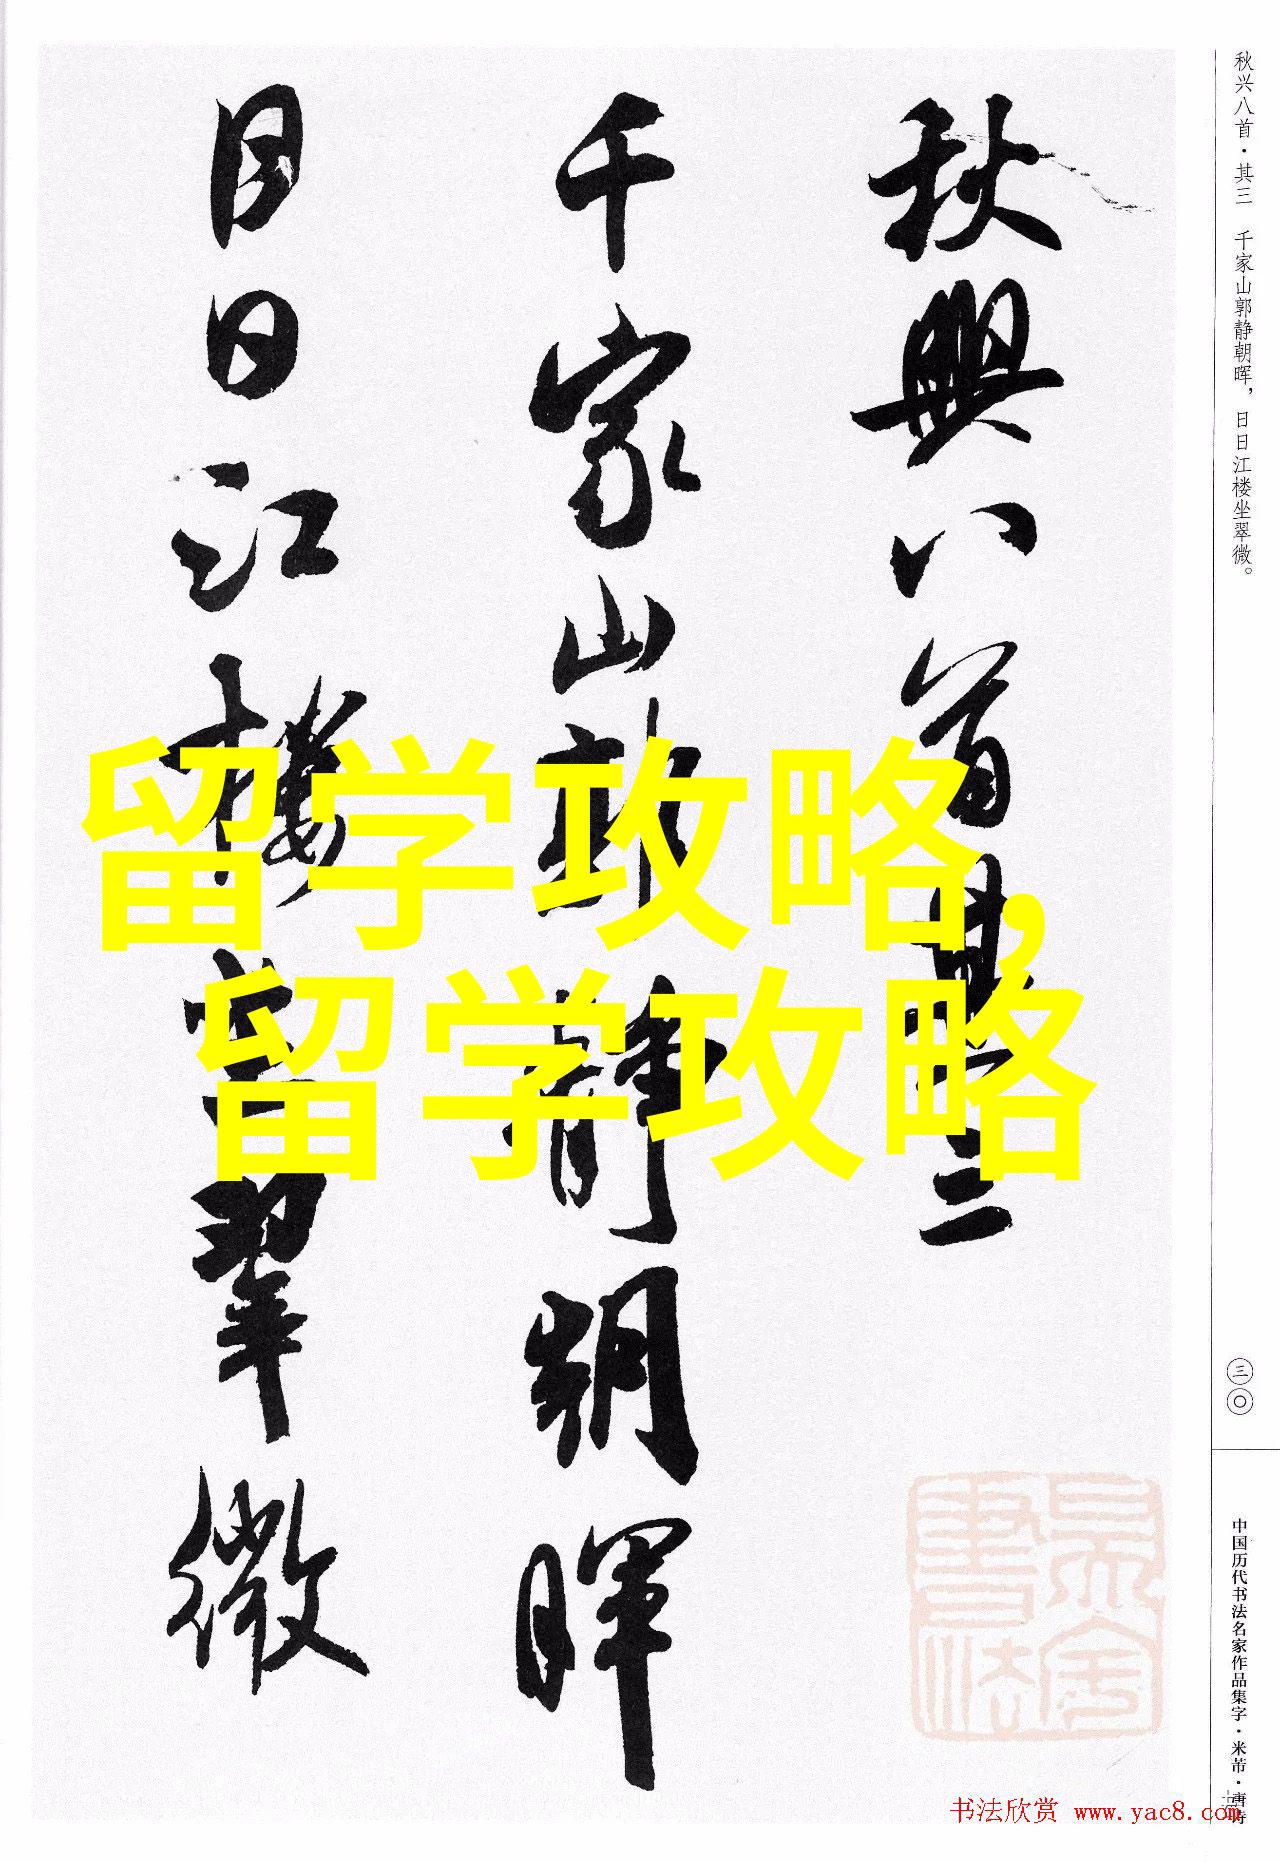 秋興八首其三
千家山郭静朝暉
日日江樓坐翠微
留学攻略,
留学攻略
秋兴八首·其三 千家山郭静朝晖，日日江楼坐翠微。
三〇
中国历代书法名家作品集字·米芾·唐诗
书法欣赏 www.yac8.com